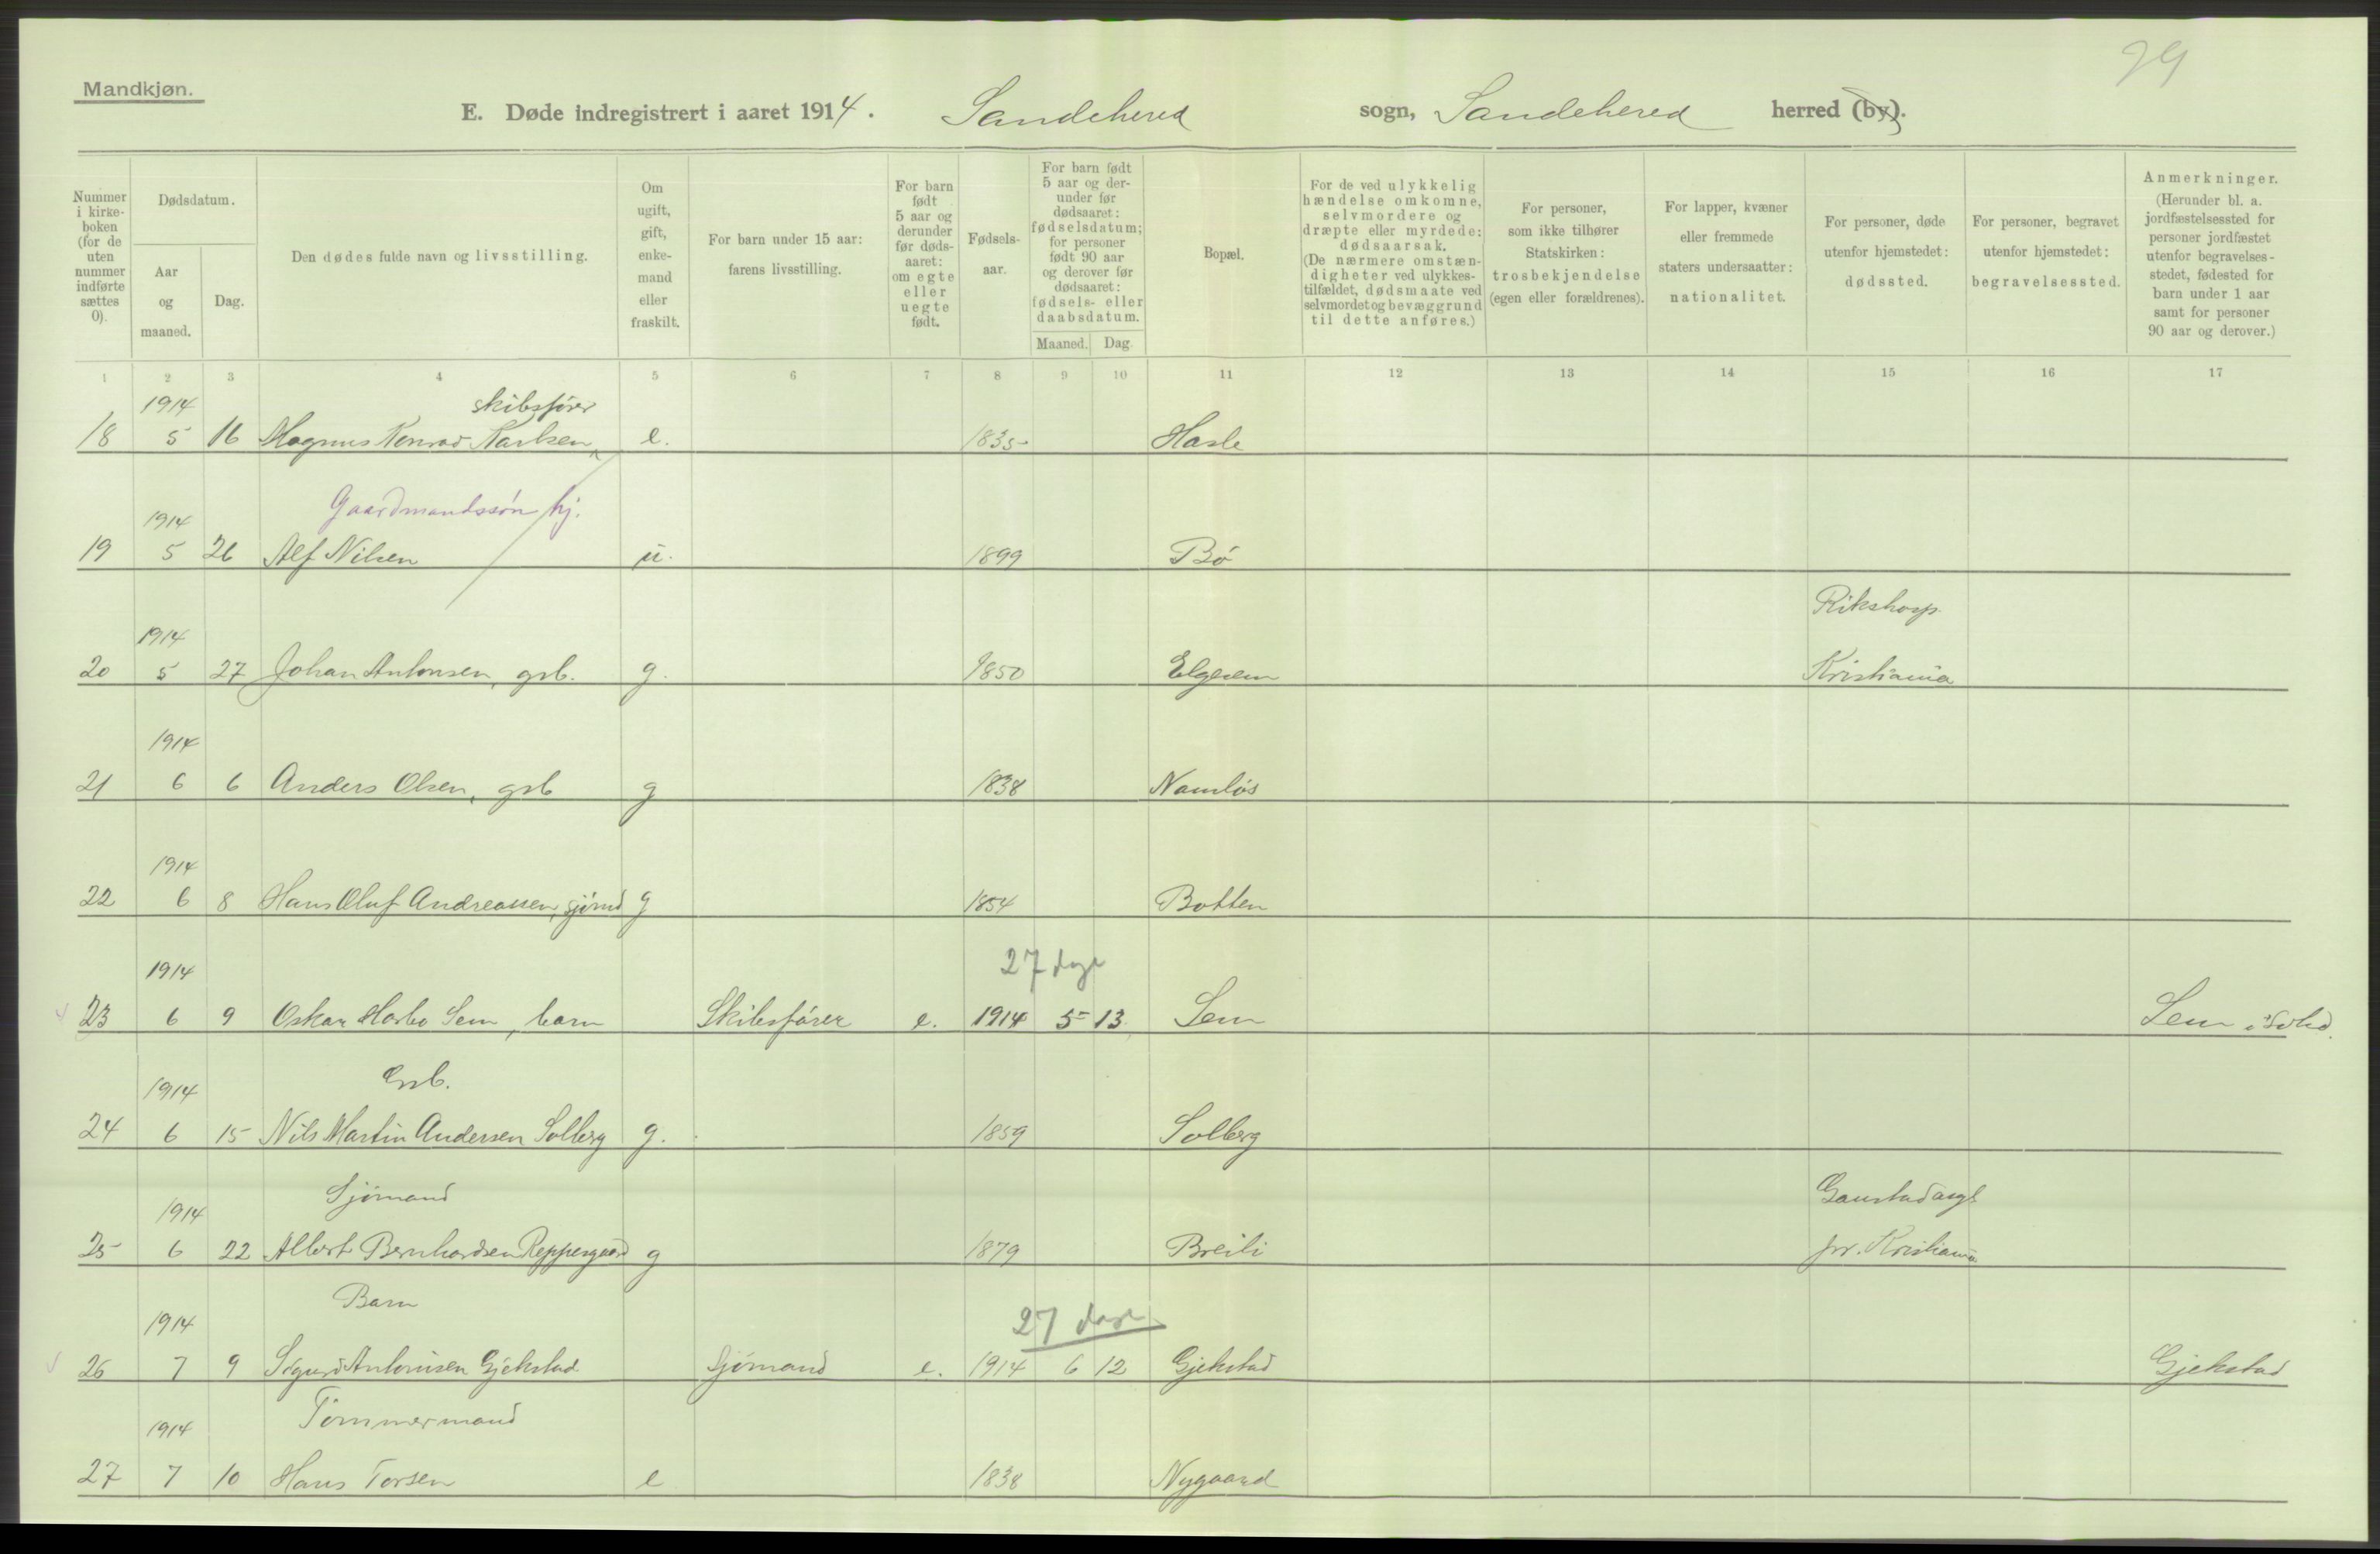 29
Mandkjøn.
E. Døde indregistrert i aaret 1914. Sandehered sogn, Sandehered herred (by).
Nummer i kirke- boken (for de uten nummer indførte sættes 0).
Dødsdatum.
Aar og maaned.
Dag.
Den dødes fulde navn og livsstilling.
Om ugift, gift, enke- mand eller fraskilt.
For barn under 15 aar: farens livsstilling.
For barn født 5 aar og derunder før døds- aaret: om egte eller uegte født.
Fødsels- aar.
For barn født 5 aar og der- under før dødsaaret: fødselsdatum; for personer født 90 aar og derover før dødsaaret: fødsels- eller daabsdatum.
Maaned. Dag.
Bopæl.
For de ved ulykkelig hændelse omkomne, selvmordere og dræpte eller myrdede: dødsaarsak. (De nærmere omstæn- digheter ved ulykkes- tilfældet, dødsmaate ved selvmordet og bevæggrund til dette anføres.)
For personer, som ikke tilhører Statskirken: trosbekjendelse (egen eller forældrenes).
For lapper, kvæner eller fremmede staters undersaatter: nationalitet.
For personer, døde utenfor hjemstedet: dødssted.
For personer, begravet utenfor hjemstedet: begravelsessted.
Anmerkninger. (Herunder bl. a. jordfæstelsessted for personer jordfæstet utenfor begravelses- stedet, fødested for barn under 1 aar samt for personer 90 aar og derover.)
1 2 3 4 5 6 7 8 9 10 11 12 13 14 15 16 17
1914 skibsfører
18 5 16 Magnus Konrad Karlsen e. 1835 Hasle
Gaardmandssøn hj.
1914
19 5 26 Alf Nilsen u. 1899 Bø
1914 Rikshosp.
20 5 27 Johan Antonsen, grb. g. 1850 Elgesem Kristiania
1914
21 6 6 Anders Olsen, grb g 1838 Namløs
1914
22 6 8 Hans Oluf Andreassen, sjømd g 1854 Botten
1914 27 dage
23 6 9 Oskar Harbo Sem, barn Skibsfører e. 1914 5 13 Sem Sem i
1914 Grb.
24 6 15 Nils Martin Andersen Solberg g. 1859 Solberg
Sjømand Gaustad asyl
1914
25 6 22 Albert Bernhardsen Reppesgaard g 1879 Breili pr. Kristiania
Barn
1914 27 dage
26 7 9 Sigurd Antonisen Gjekstad sjømand e. 1914 6 12 Gjekstad Gjekstad
Tømmermand
1914
27 7 10 Hans Torsen e 1838 Nygaard